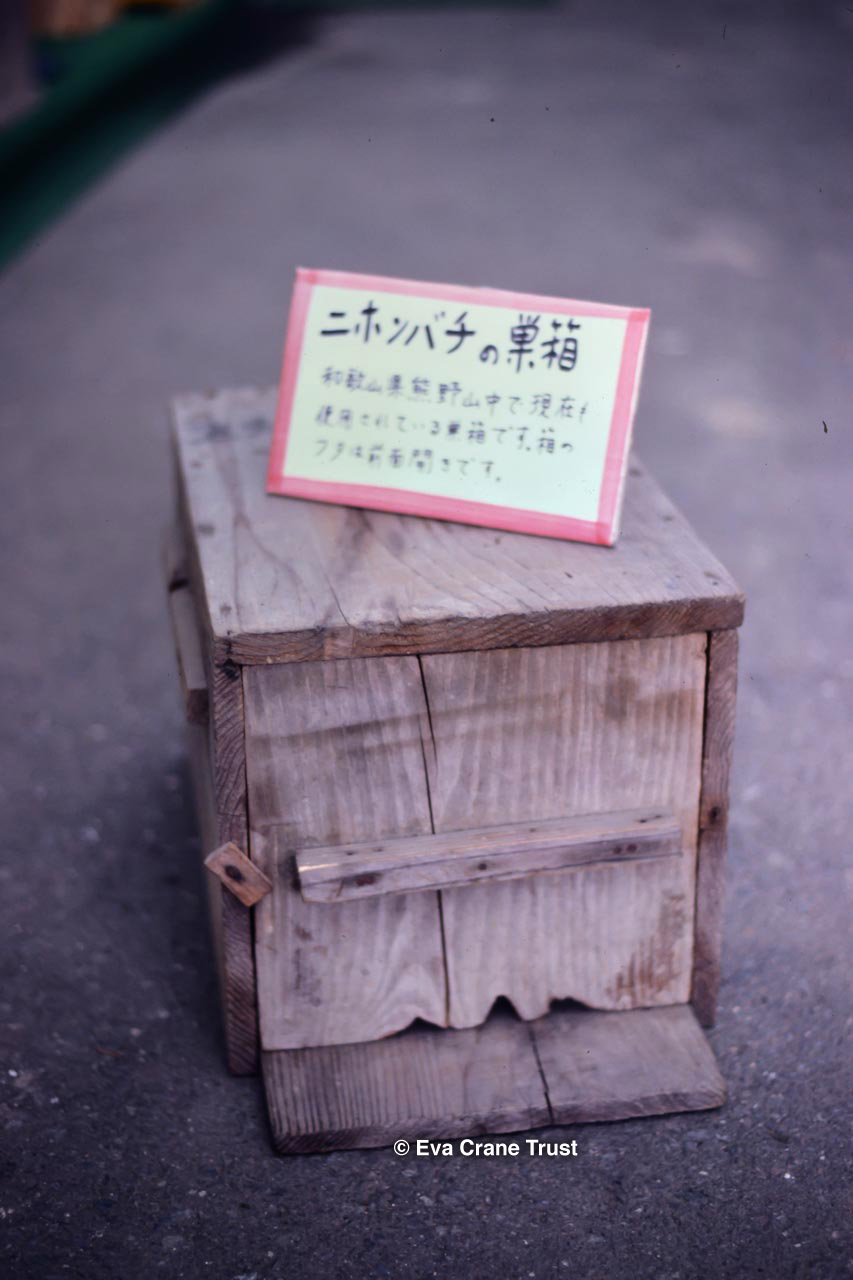 ニホンバチの巣箱
和歌山県熊野山中で現在も
使用されている巣箱です。箱の
フタは前面開きです。
© Eva Crane Trust